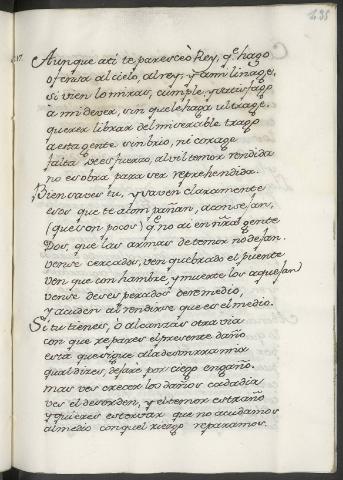 Aunque a ti te paresce ò Rey, q.e hago
ofensa al cielo, al rey, y a mi linage,
si vien lo miras, cumple, y satisfago
a mi dever, sin que le haga ultrage.
querer librar del miserable trago
a esta gente sin brio, ni corage
falta de esfuerzo, al vil temor rendida
no es obra para ser reprehendida.
Bien saves tu, y saven claramente
esos que te acompañan, aconsejan,
(que son pocos) q.e no ai en ñra gente
Dos, que las armas de temor no dejan.
vense cercados, ven quebrado el puente
ven que con hambre, y muerte los aquejan
vense desesperados de remedio,
y acuden al rendirse que es el medio.
Si tu tienes, ò alcanzas otra via
con que repares el presente daño
esta que sigue a la desinra mia
qual dizes, dejare por ciego engaño.
mas ves crecer los daños cada dia
ves el desorden, y el temor estraño
y quieres estorvar que no acudamos
al medio con quel riesgo reparamos.